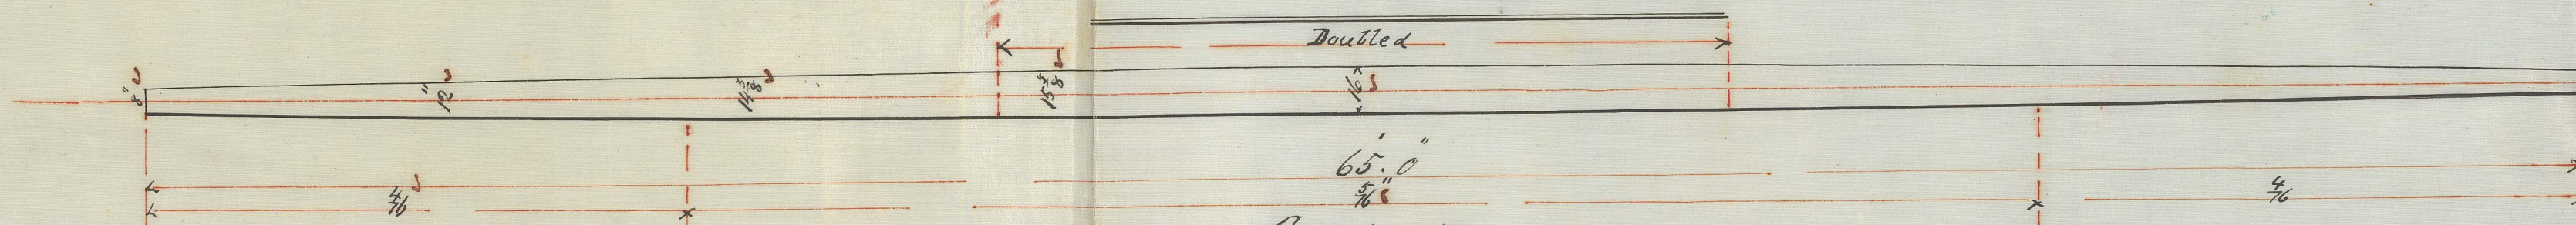 Doubled
8" 12" 14 5/8 15 5/8 16
65'.0"
4/16 5/16" 4/16